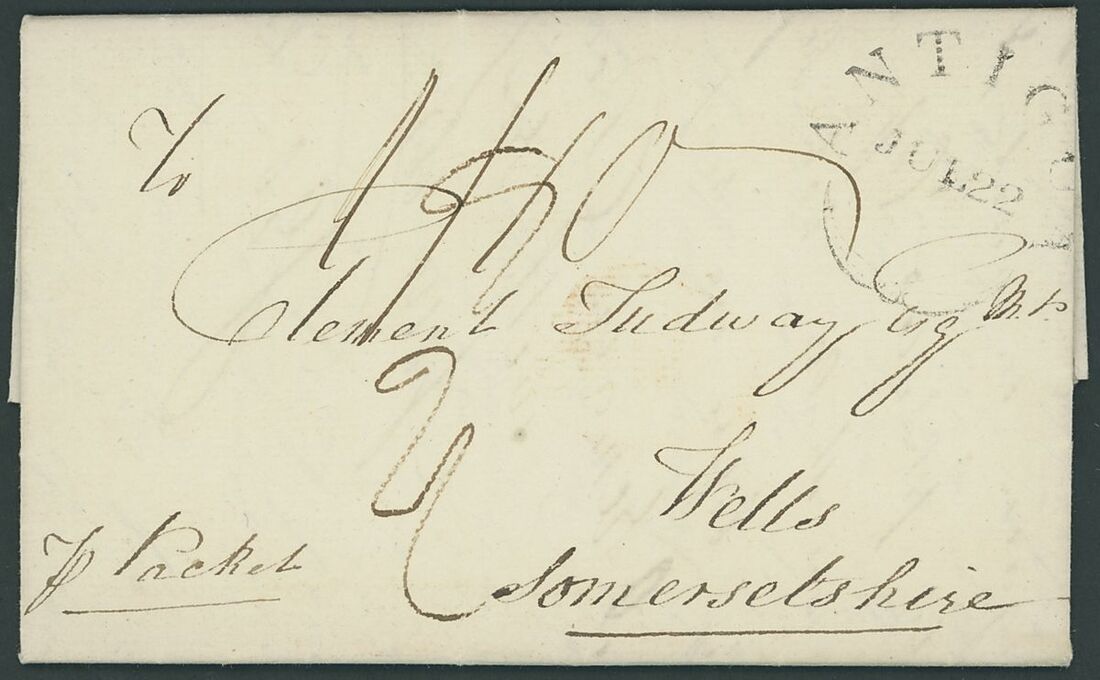 ANTIGUA
JUL 22
To
Clement Tudway Esq
Wells
Somersetshire
p Packet